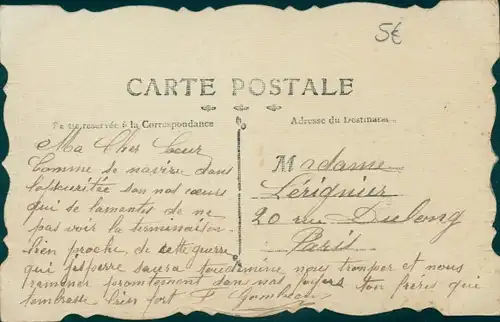 5€
CARTE POSTALE
Partie réservée à la Correspondance
Adresse du Destinataire
Ma Cher Sœur
Comme se navire dans
l'obscuritée son nos cœurs
qui se lamentes de ne
pas voir la terminaison
bien proche de cette guerre
qui j'espère saura nous et nous
ramener promptement dans nos foyers ton frères qui
tembrasse bien fort F
Madame
Lérignier
20 rue Dulong
Paris